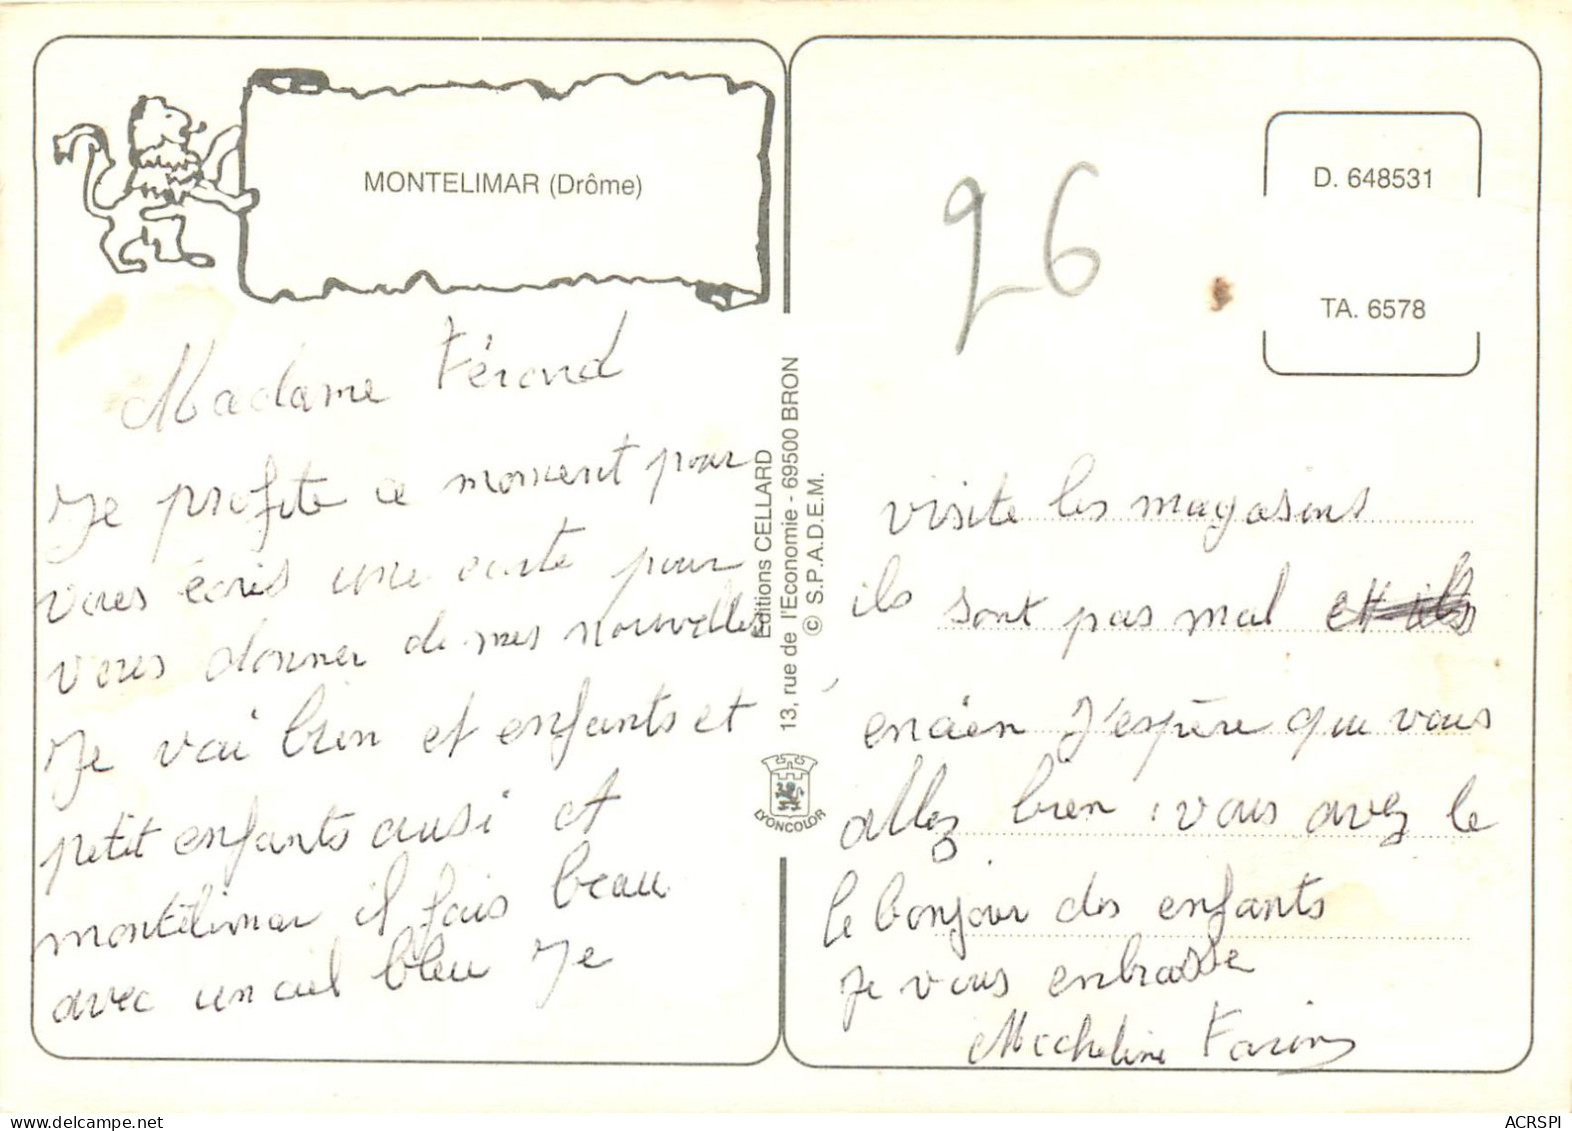 MONTELIMAR (Drôme)
Madame Férond
Je profite ce moment pour
vous écris une carte pour
vous donner de mes nouvelles
Je vai bien et enfants et
petit enfants ausi et
montélimar il fais beau
avec un ciel bleu Je
Editions CELLARD
13, rue de l'Economie - 69500 BRON
© S.P.A.D.E.M.
LYONCOLOR
26
D. 648531
TA. 6578
visite les magasins
ils sont pas mal
encien J'espère que vous
allez bien : vous avez le
le bonjour des enfants
Je vous enbrasse
Micheline
ACRSPI